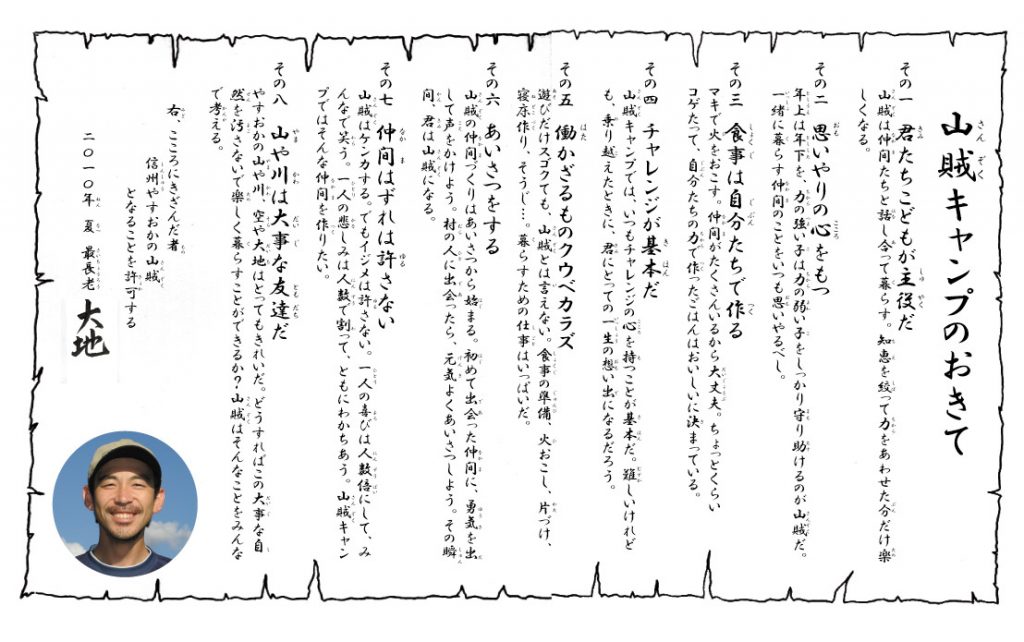 山賊キャンプのおきて
その一 君たちこどもが主役だ
山賊は仲間たちと話し合って暮らす。知恵を絞って力をあわせた分だけ楽
しくなる。
その二 思いやりの心をもつ
年上は年下を、力の強い子は力の弱い子をしっかり守り助けるのが山賊だ。
一緒に暮らす仲間のことをいつも思いやるべし。
その三 食事は自分たちで作る
マキで火をおこす。仲間がたくさんいるから大丈夫。ちょっとくらい
コゲたって、自分たちの力で作ったごはんはおいしいに決まっている。
その四 チャレンジが基本だ
山賊キャンプでは、いつもチャレンジの心を持つことが基本だ。難しいけれど
も、乗り越えたときに、君にとっての一生の想い出になるだろう。
その五 働かざるものクウベカラズ
遊びだけスゴクても、山賊とは言えない。食事の準備、火おこし、片づけ、
寝床作り、そうじ…。暮らすための仕事はいっぱいだ。
その六 あいさつをする
山賊の仲間づくりはあいさつから始まる。初めて出会った仲間に、勇気を出
して声をかけよう。村の人に出会ったら、元気よくあいさつしよう。その瞬
間、君は山賊になる。
その七 仲間はずれは許さない
山賊はケンカする。でもイジメは許さない。一人の喜びは人数倍にして、み
んなで笑う。一人の悲しみは人数で割って、ともにわかちあう。山賊キャン
プではそんな仲間を作りたい。
その八 山や川は大事な友達だ
やすおかの山や川、空や大地はとってもきれいだ。どうすればこの大事な自
然を汚さないで楽しく暮らすことができるか？山賊はそんなことをみんな
で考える。
右、こころにきざんだ者
信州やすおかの山賊
となることを許可する
二〇一〇年 夏 最長老 大地